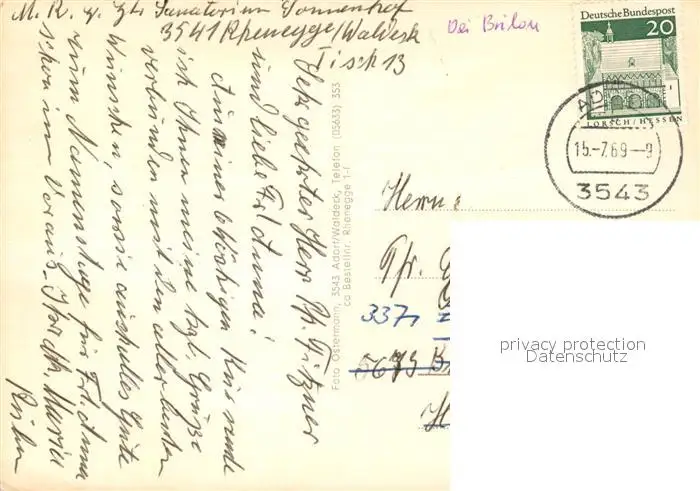 M. R. z. Zt. Sanatorium Sonnenhof
3541 Rhenegge/Waldeck
Tisch 13
bei Brilon
Deutsche Bundespost
20
LORSCH/HESSEN
15.-7.69-9
3543
Sehr geehrter Herr Pf. Fitzner
und liebe Frl. Anna!
Aus meiner Kur sende
ich Ihnen meine hzl. Grüße
verbunden mit den allerbesten
Wünschen, sowie auch alles Gute
zum Namenstage für Frl. Anna
schon im Voraus. Ihre Maria
Foto Ostermann, 3543 Adorf/Waldeck, Telefon (05633) 353
ca Bestellnr. Rhenegge 1-f
Herrn
Pfr.
337,
5673 B
privacy protection
Datenschutz